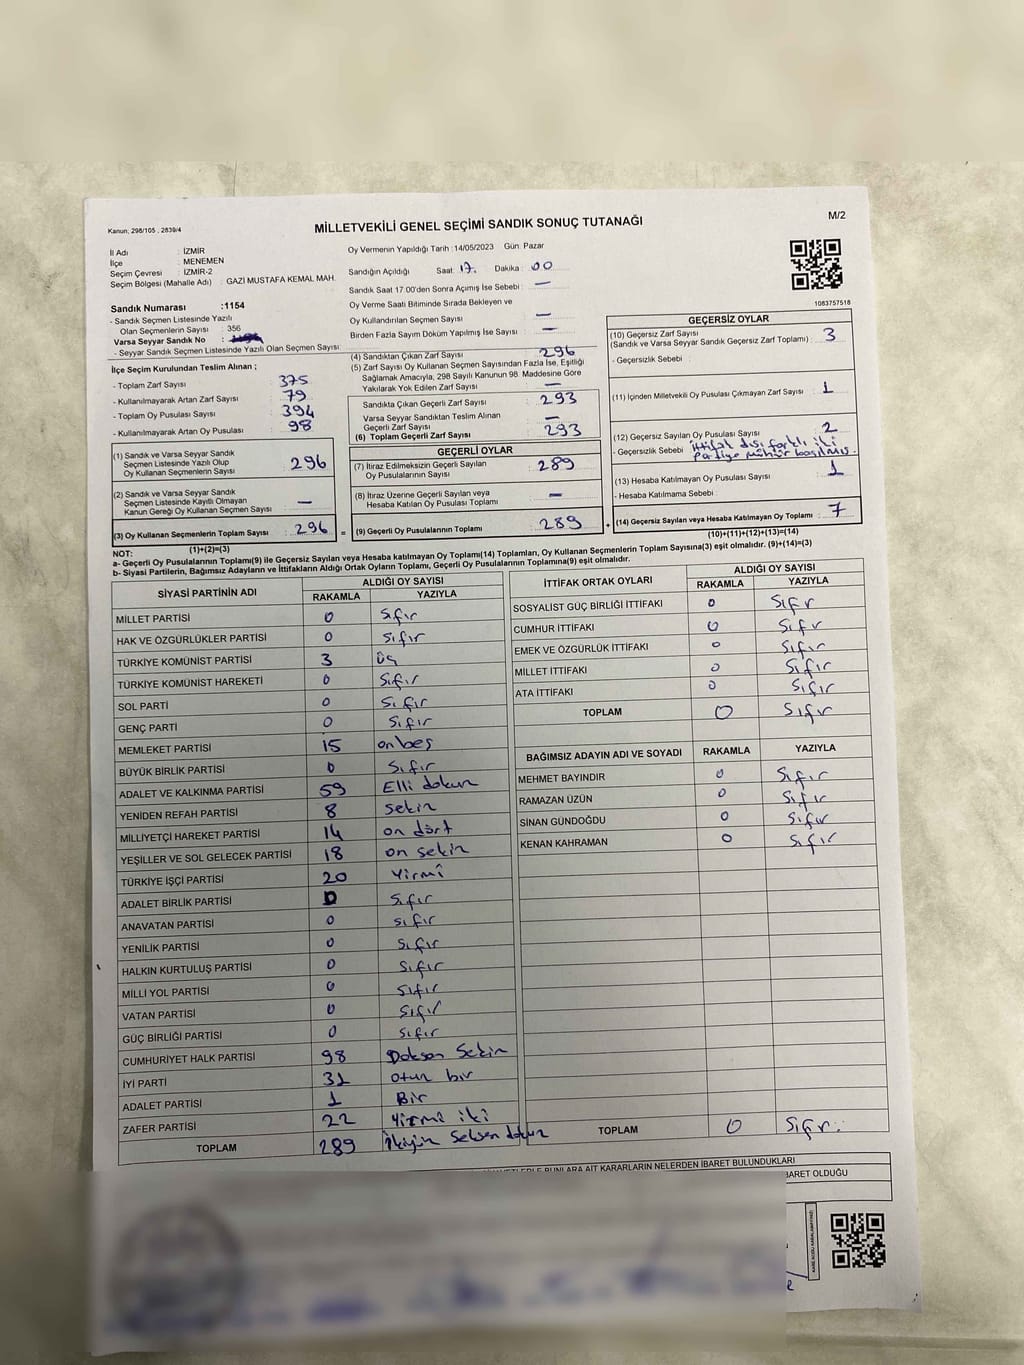 Kanun: 298/105 , 2839/4
MİLLETVEKİLİ GENEL SEÇİMİ SANDIK SONUÇ TUTANAĞI
M/2
İl Adı : İZMİR
İlçe : MENEMEN
Seçim Çevresi : İZMİR-2
Seçim Bölgesi (Mahalle Adı) : GAZİ MUSTAFA KEMAL MAH.
Oy Vermenin Yapıldığı Tarih :14/05/2023 Gün: Pazar
Sandığın Açıldığı Saat: 17. Dakika: 00
Sandık Saat 17.00'den Sonra Açımış İse Sebebi : —
Oy Verme Saati Bitiminde Sırada Bekleyen ve
Oy Kullandırılan Seçmen Sayısı : —
Birden Fazla Sayım Döküm Yapılmış İse Sayısı : —
1083757518
Sandık Numarası :1154
- Sandık Seçmen Listesinde Yazılı
Olan Seçmenlerin Sayısı : 356
Varsa Seyyar Sandık No :
- Seyyar Sandık Seçmen Listesinde Yazılı Olan Seçmen Sayısı:
İlçe Seçim Kurulundan Teslim Alınan ;
- Toplam Zarf Sayısı : 375
- Kullanılmayarak Artan Zarf Sayısı : 79
- Toplam Oy Pusulası Sayısı : 394
- Kullanılmayarak Artan Oy Pusulası : 98
(1) Sandık ve Varsa Seyyar Sandık
Seçmen Listesinde Yazılı Olup
Oy Kullanan Seçmenlerin Sayısı : 296
(2) Sandık ve Varsa Seyyar Sandık
Seçmen Listesinde Kayıtlı Olmayan
Kanun Gereği Oy Kullanan Seçmen Sayısı : —
(3) Oy Kullanan Seçmenlerin Toplam Sayısı : 296 =
(1)+(2)=(3)
(4) Sandıktan Çıkan Zarf Sayısı : 296
(5) Zarf Sayısı Oy Kullanan Seçmen Sayısından Fazla İse, Eşitliği
Sağlamak Amacıyla, 298 Sayılı Kanunun 98. Maddesine Göre
Yakılarak Yok Edilen Zarf Sayısı : —
Sandıkta Çıkan Geçerli Zarf Sayısı : 293
Varsa Seyyar Sandıktan Teslim Alınan
Geçerli Zarf Sayısı : —
(6) Toplam Geçerli Zarf Sayısı : 293
GEÇERLİ OYLAR
(7) İtiraz Edilmeksizin Geçerli Sayılan
Oy Pusulalarının Sayısı : 289
(8) İtiraz Üzerine Geçerli Sayılan veya
Hesaba Katılan Oy Pusulası Toplamı : —
(9) Geçerli Oy Pusulalarının Toplamı : 289 +
GEÇERSİZ OYLAR
(10) Geçersiz Zarf Sayısı
(Sandık ve Varsa Seyyar Sandık Geçersiz Zarf Toplamı) : 3
- Geçersizlik Sebebi :
(11) İçinden Milletvekili Oy Pusulası Çıkmayan Zarf Sayısı : 1
(12) Geçersiz Sayılan Oy Pusulası Sayısı : 2
- Geçersizlik Sebebi : ittifak dışı farklı iki
partiye mühür basılmış.
(13) Hesaba Katılmayan Oy Pusulası Sayısı : 1
- Hesaba Katılmama Sebebi :
(14) Geçersiz Sayılan veya Hesaba Katılmayan Oy Toplamı : 7
(10)+(11)+(12)+(13)=(14)
NOT:
a- Geçerli Oy Pusulalarının Toplamı(9) ile Geçersiz Sayılan veya Hesaba katılmayan Oy Toplamı(14) Toplamları, Oy Kullanan Seçmenlerin Toplam Sayısına(3) eşit olmalıdır. (9)+(14)=(3)
b- Siyasi Partilerin, Bağımsız Adayların ve İttifakların Aldığı Ortak Oyların Toplamı, Geçerli Oy Pusulalarının Toplamına(9) eşit olmalıdır.
SİYASİ PARTİNİN ADI ALDIĞI OY SAYISI
RAKAMLA YAZIYLA
MİLLET PARTİSİ 0 Sıfır
HAK VE ÖZGÜRLÜKLER PARTİSİ 0 Sıfır
TÜRKİYE KOMÜNİST PARTİSİ 3 Üç
TÜRKİYE KOMÜNİST HAREKETİ 0 Sıfır
SOL PARTİ 0 Sıfır
GENÇ PARTİ 0 Sıfır
MEMLEKET PARTİSİ 15 onbeş
BÜYÜK BİRLİK PARTİSİ 0 Sıfır
ADALET VE KALKINMA PARTİSİ 59 Elli dokuz
YENİDEN REFAH PARTİSİ 8 Sekiz
MİLLİYETÇİ HAREKET PARTİSİ 14 on dört
YEŞİLLER VE SOL GELECEK PARTİSİ 18 on sekiz
TÜRKİYE İŞÇİ PARTİSİ 20 Yirmi
ADALET BİRLİK PARTİSİ 0 Sıfır
ANAVATAN PARTİSİ 0 Sıfır
YENİLİK PARTİSİ 0 Sıfır
HALKIN KURTULUŞ PARTİSİ 0 Sıfır
MİLLİ YOL PARTİSİ 0 Sıfır
VATAN PARTİSİ 0 Sıfır
GÜÇ BİRLİĞİ PARTİSİ 0 Sıfır
CUMHURİYET HALK PARTİSİ 98 Doksan Sekiz
İYİ PARTİ 31 Otuz bir
ADALET PARTİSİ 1 Bir
ZAFER PARTİSİ 22 Yirmi iki
TOPLAM 289 İkiyüz Seksen dokuz
İTTİFAK ORTAK OYLARI ALDIĞI OY SAYISI
RAKAMLA YAZIYLA
SOSYALİST GÜÇ BİRLİĞİ İTTİFAKI 0 Sıfır
CUMHUR İTTİFAKI 0 Sıfır
EMEK VE ÖZGÜRLÜK İTTİFAKI 0 Sıfır
MİLLET İTTİFAKI 0 Sıfır
ATA İTTİFAKI 0 Sıfır
TOPLAM 0 Sıfır
BAĞIMSIZ ADAYIN ADI VE SOYADI RAKAMLA YAZIYLA
MEHMET BAYINDIR 0 Sıfır
RAMAZAN UZUN 0 Sıfır
SİNAN GÜNDOĞDU 0 Sıfır
KENAN KAHRAMAN 0 Sıfır
TOPLAM 0 Sıfır.
BUNLARA AİT KARARLARIN NELERDEN İBARET BULUNDUKLARI
BARET OLDUĞU